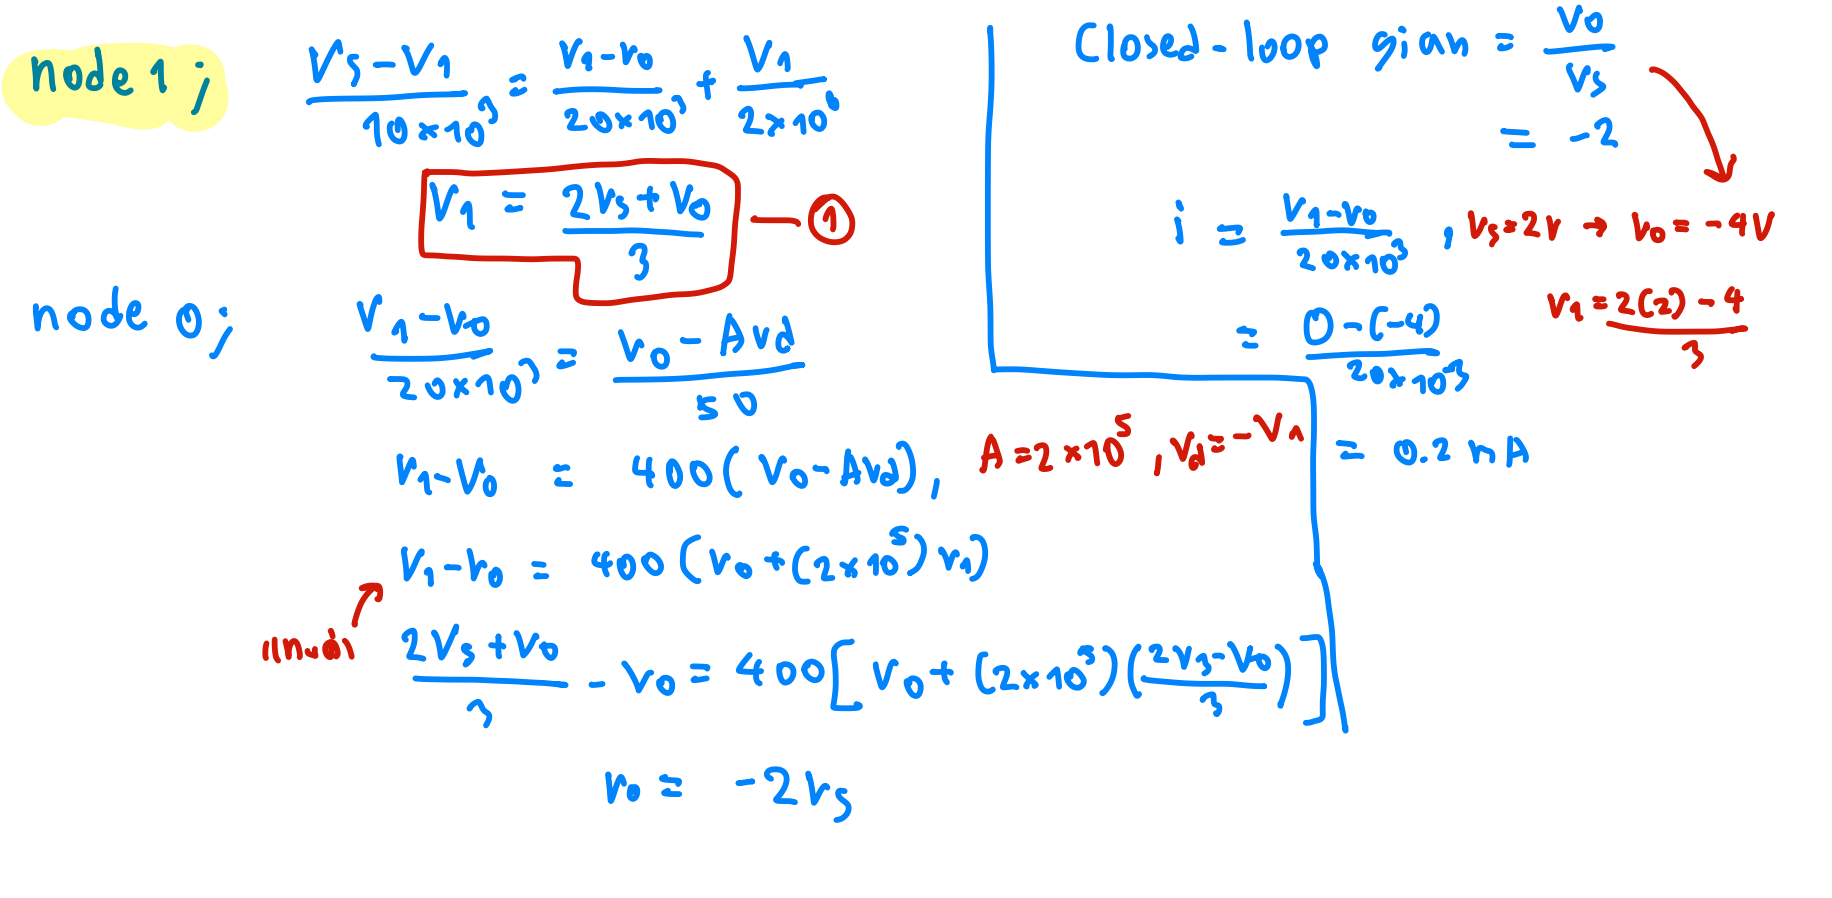 node 1 ; (Vs - V1) / (10×10³) = (V1 - V0) / (20×10³) + V1 / (2×10⁶)
V1 = (2Vs + V0) / 3 — ①
node 0 ; (V1 - V0) / (20×10³) = (V0 - AVd) / 50
V1 - V0 = 400 (V0 - AVd) , A = 2×10⁵ , Vd = -V1
V1 - V0 = 400 (V0 + (2×10⁵) V1)
แทน ①
(2Vs + V0) / 3 - V0 = 400 [V0 + (2×10⁵) ((2Vs - V0) / 3)]
V0 = -2Vs
Closed-loop gian = V0 / Vs
= -2
i = (V1 - V0) / (20×10³) , Vs = 2V → V0 = -4V
V1 = (2(2) - 4) / 3
= (0 - (-4)) / (20×10³)
= 0.2 mA